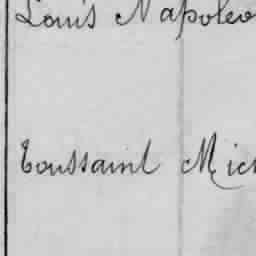 Louis Napoleo
Toussaint Mich